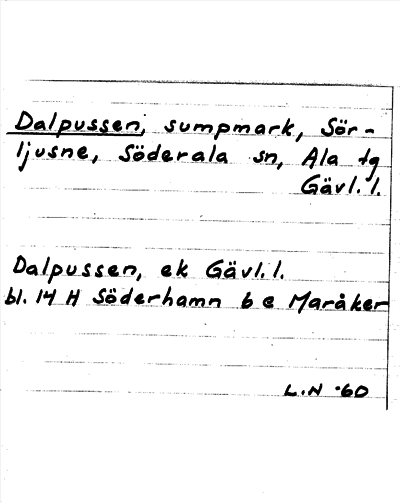 Dalpussen, sumpmark, Sör-
ljusne, Söderala sn, Ala tg
Gävl.l.
Dalpussen, ek Gävl.l.
bl. 14 H Söderhamn 6 e Maråker
L.N -60